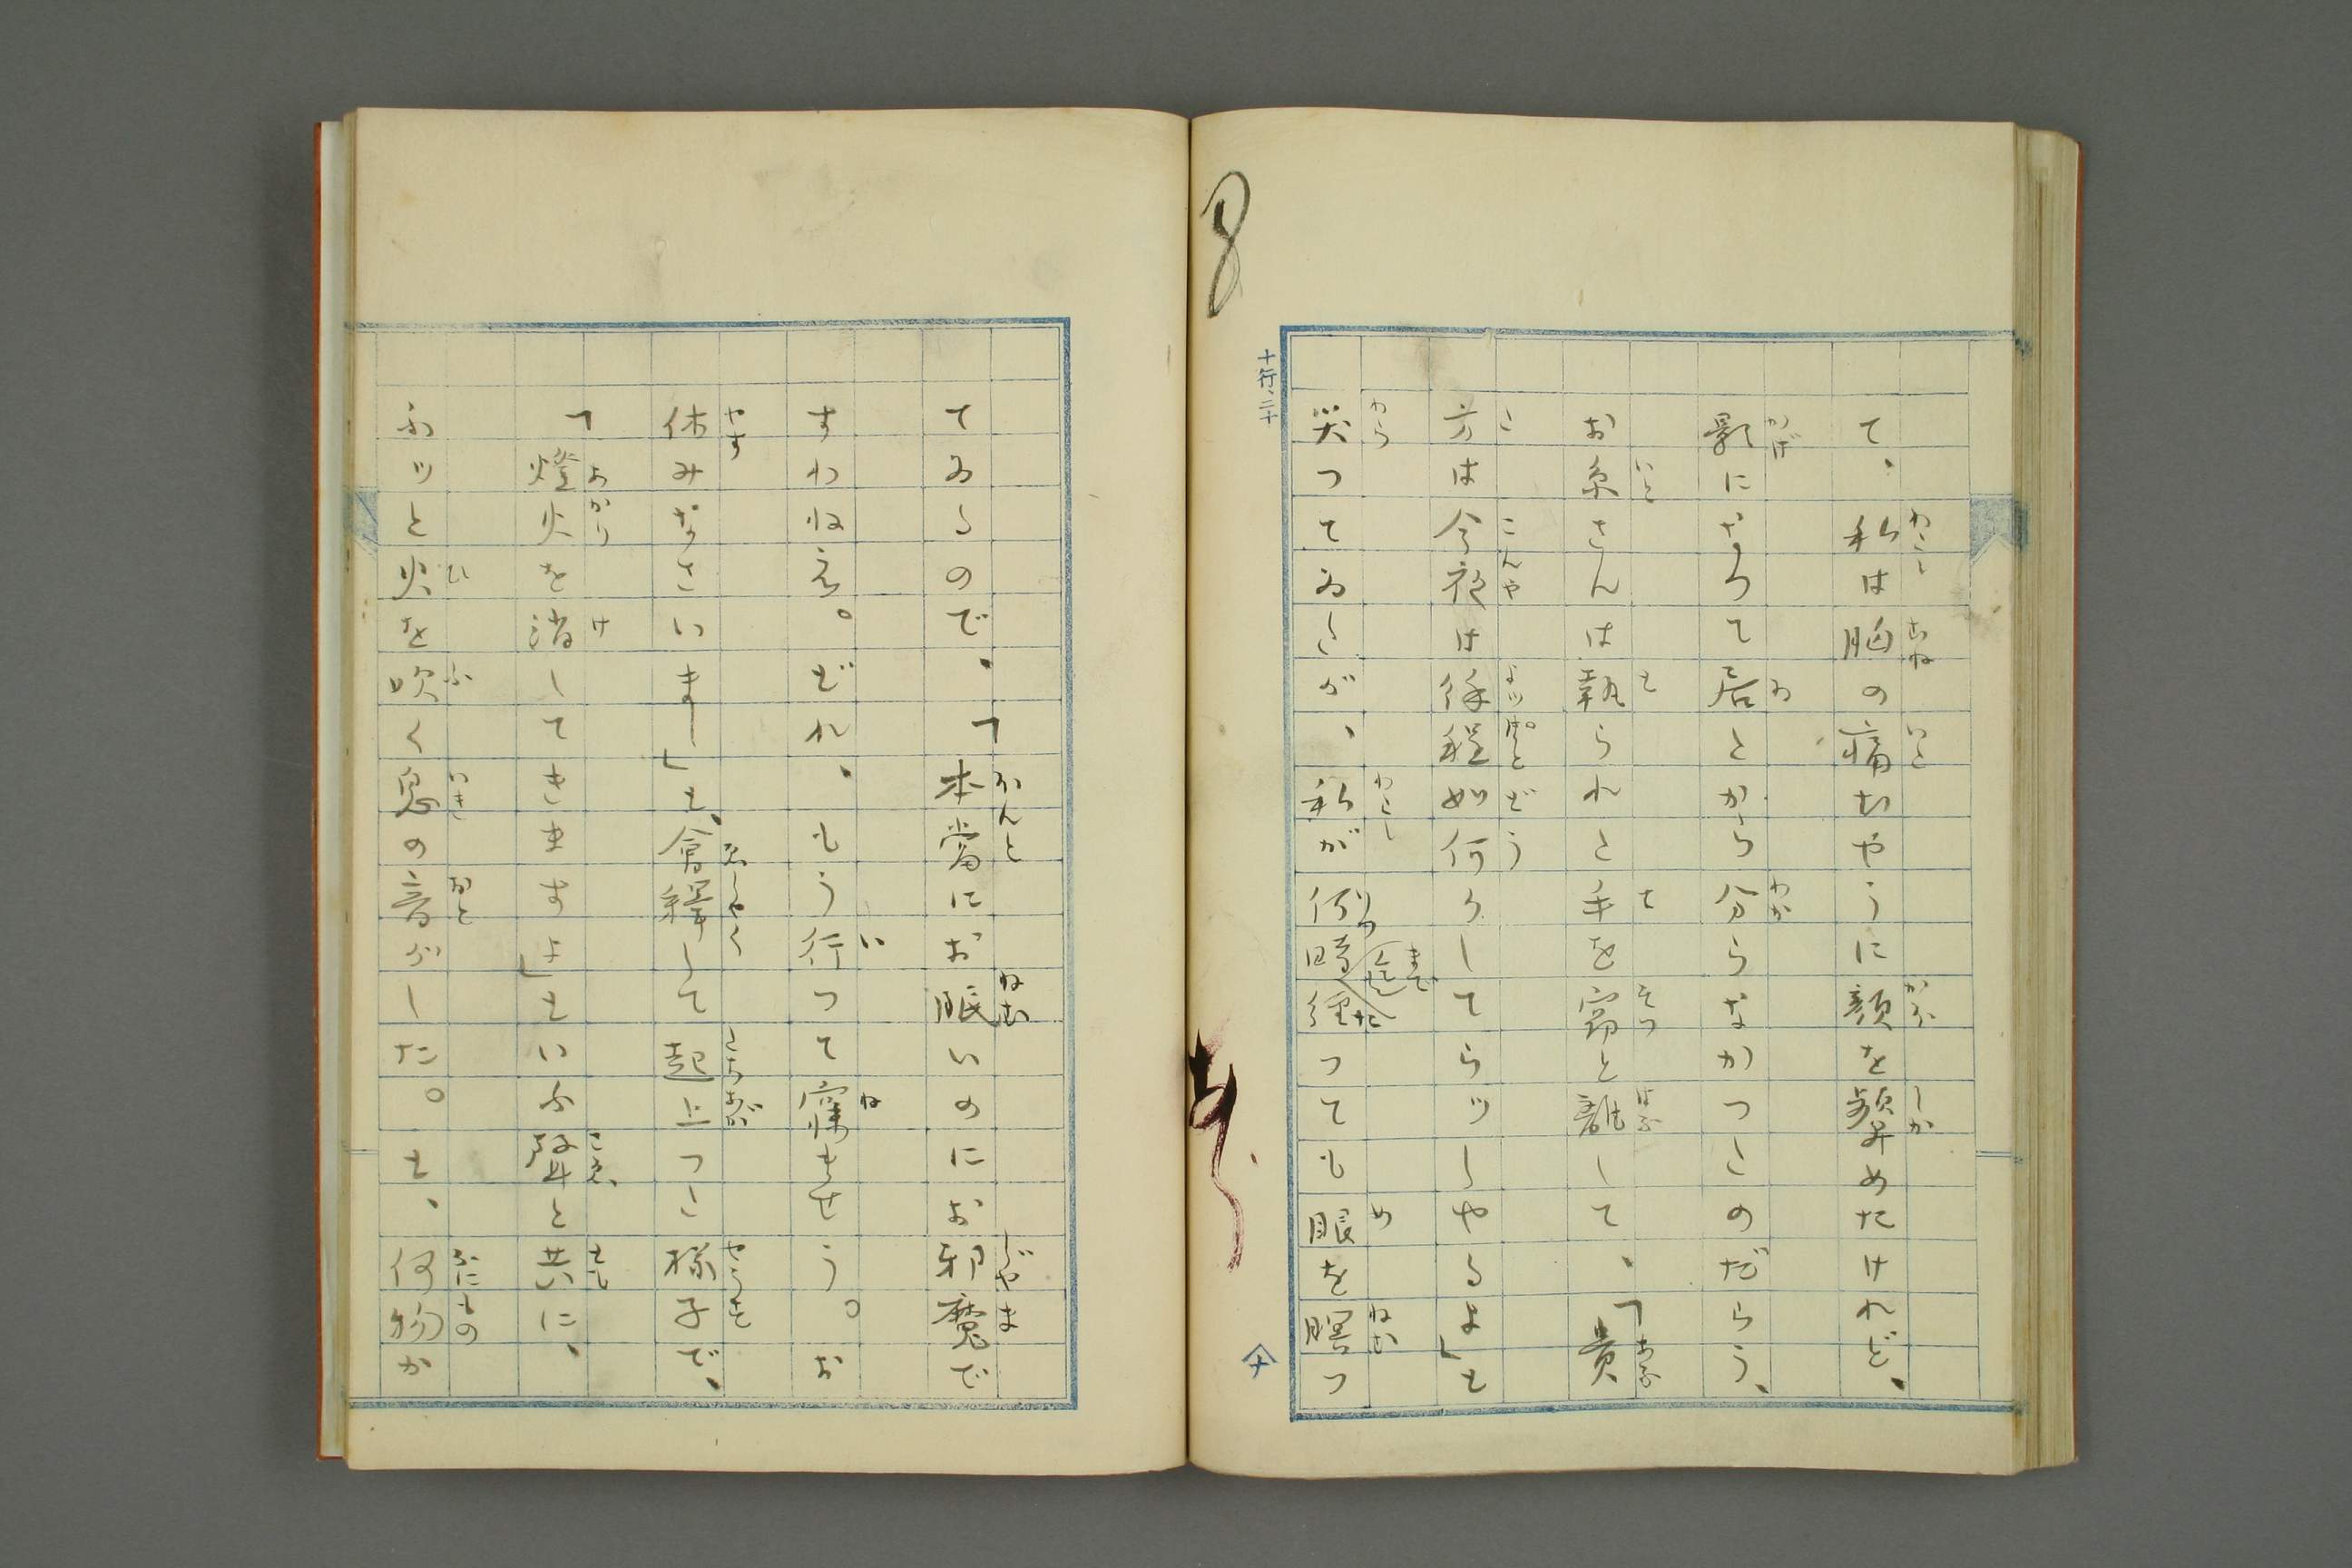 て、私は胸の痛むやうに顔を顰めたけれど、
影になつて居たから分らなかつたのだらう、
お糸さんは執られた手を窃と離して、「貴
方は今夜は余程如何うしてらッしやるよ」と
笑つてゐたが、私が何時迄経つても眼を瞑つ
てゐるので、「本當にお眠いのにお邪魔で
すわねえ。どれ、もう行つて寐ませう。お
休みなさいまし」と、會釋して起上つた様子で、
「燈火を消してきますよ」といふ聲と共に、
ふッと火を吹く息の音がした。と、何物か
十行、二十
8